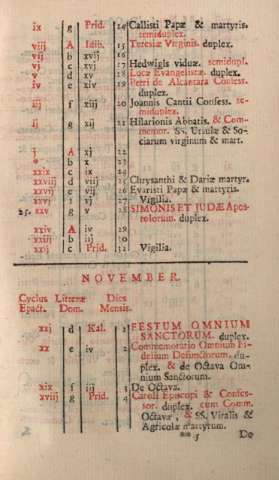 ix g Prid. 14 Callisti Papæ & martyris.
semiduplex.
viij A Idib. 15 Teresiæ Virginis. duplex.
vij b xvij 16
vj c xvj 17 Hedwigis viduæ. semidupl.
v d xv 18 Lucæ Evangelistæ. duplex.
iv e xiv 19 Petri de Alcantara Confess.
duplex.
iij f xiij 20 Joannis Cantii Confess. se-
miduplex.
ij g xij 21 Hilarionis Abbatis. & Com-
memor. SS. Ursulæ & So-
ciarum virginum & mart.
j A xj 22
* b x 23
xxix c ix 24
xxviij d viij 25 Chrysanthi & Dariæ martyr.
xxvij e vij 26 Evaristi Papæ & martyris.
xxvj f vj 27 Vigilia.
25. xxv g v 28 SIMONIS ET JUDÆ Apos-
tolorum. duplex.
xxiv A iv 29
xxiij b iij 30
xxij c Prid. 31 Vigilia.
NOVEMBER.
Cyclus Litteræ Dies
Epact. Dom. Mensis.
xxj d Kal. 1 FESTUM OMNIUM
SANCTORUM. duplex.
xx e iv 2 Commemoratio Omnium Fi-
delium Defunctorum. du-
plex. & de Octava Om-
nium Sanctorum.
xix f iij 3 De Octava.
xviij g Prid. 4 Caroli Episcopi & Confes-
sor. duplex. cum Comm.
Octavæ, & SS. Vitalis &
Agricolæ martyrum.
5 De